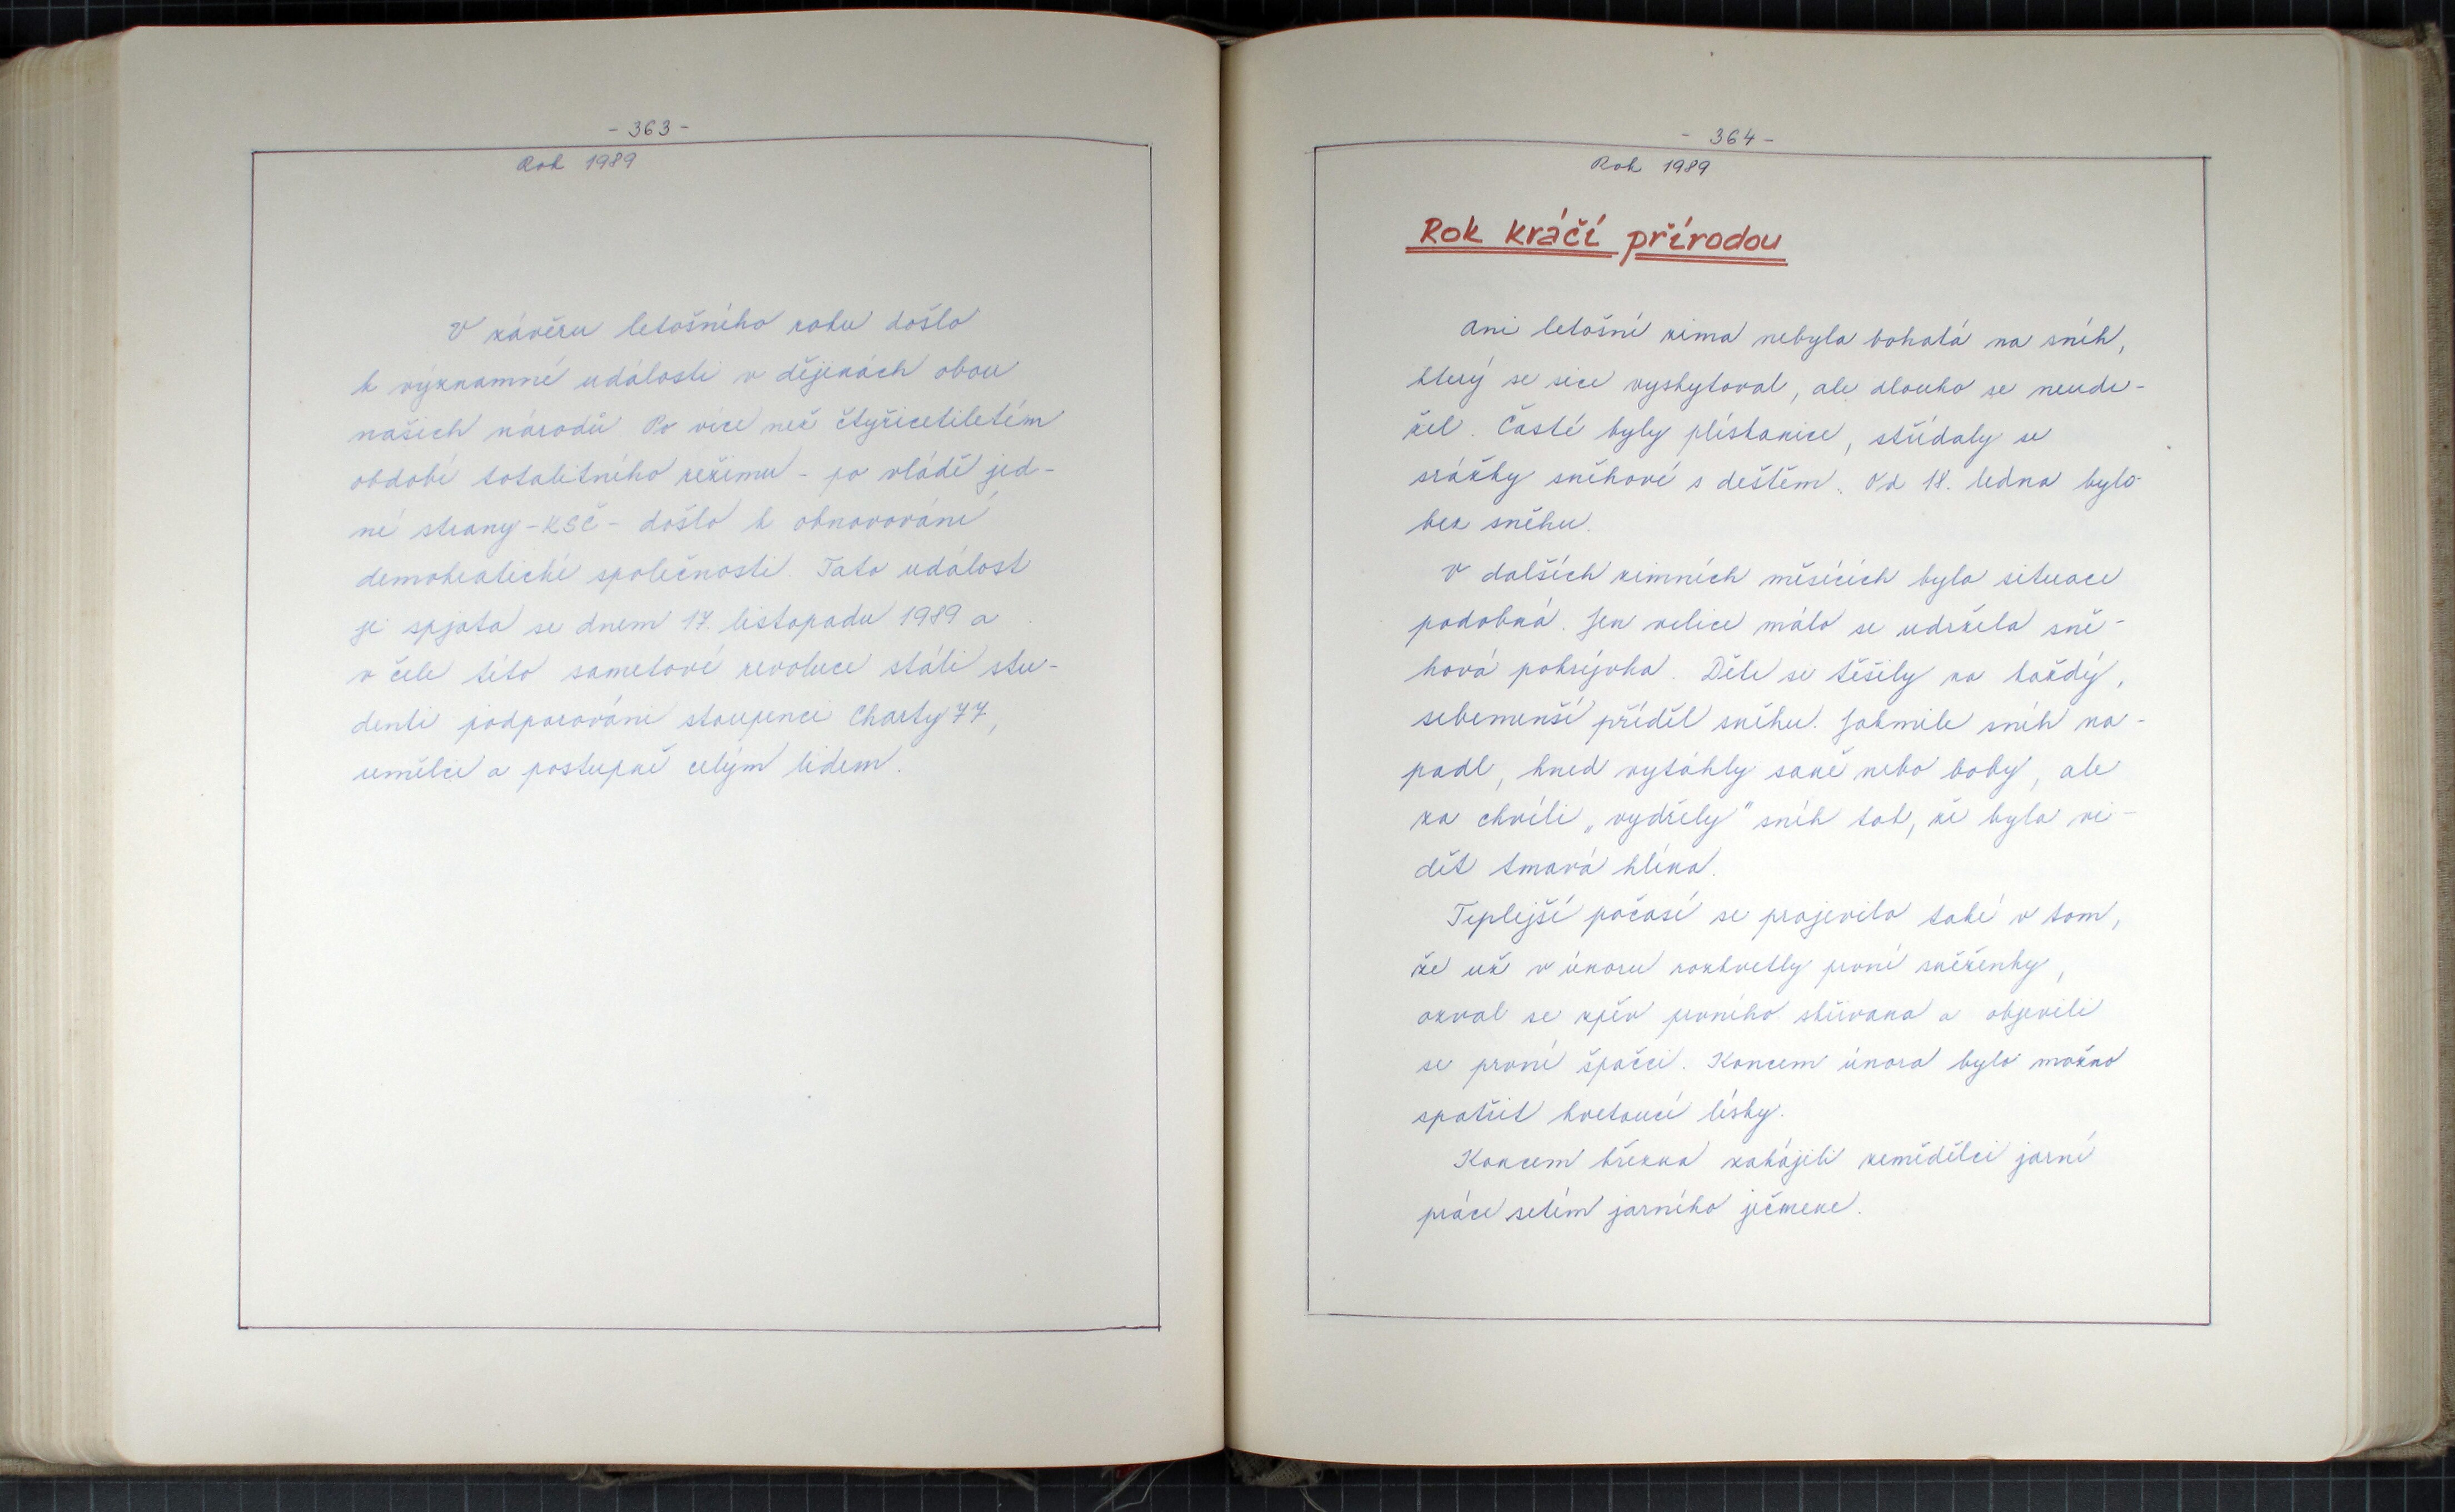 - 363 -
Rok 1989
V závěru letošního roku došlo
k významné události v dějinách obou
našich národů. Po více než čtyřicetiletém
období totalitního režimu - po vládě jed-
né strany - KSČ - došlo k obnovování
demokratické společnosti. Tato událost
je spjata se dnem 17. listopadu 1989 a
v čele této sametové revoluce stáli stu-
denti podporováni stoupenci Charty 77,
umělci a postupně celým lidem.
- 364 -
Rok 1989
Rok kráčí přírodou
Ani letošní zima nebyla bohatá na sníh,
který se sice vyskytoval, ale dlouho se neudr-
žel. Časté byly plískanice, střídaly se
srážky sněhové s deštěm. Od 18. ledna bylo
bez sněhu.
V dalších zimních měsících byla situace
podobná. Jen velice málo se udržela sně-
hová pokrývka. Děti se těšily na každý,
sebemenší příděl sněhu. Jakmile sníh na-
padl, hned vytáhly saně nebo boby, ale
za chvíli „vydřely" sníh tak, že byla vi-
dět tmavá hlína.
Teplejší počasí se projevilo také v tom,
že už v únoru rozkvetly první sněženky,
ozval se zpěv prvního skřivana a objevili
se první špačci. Koncem února bylo možno
spatřit kvetoucí lísky.
Koncem března zahájili zemědělci jarní
práce setím jarního ječmene.